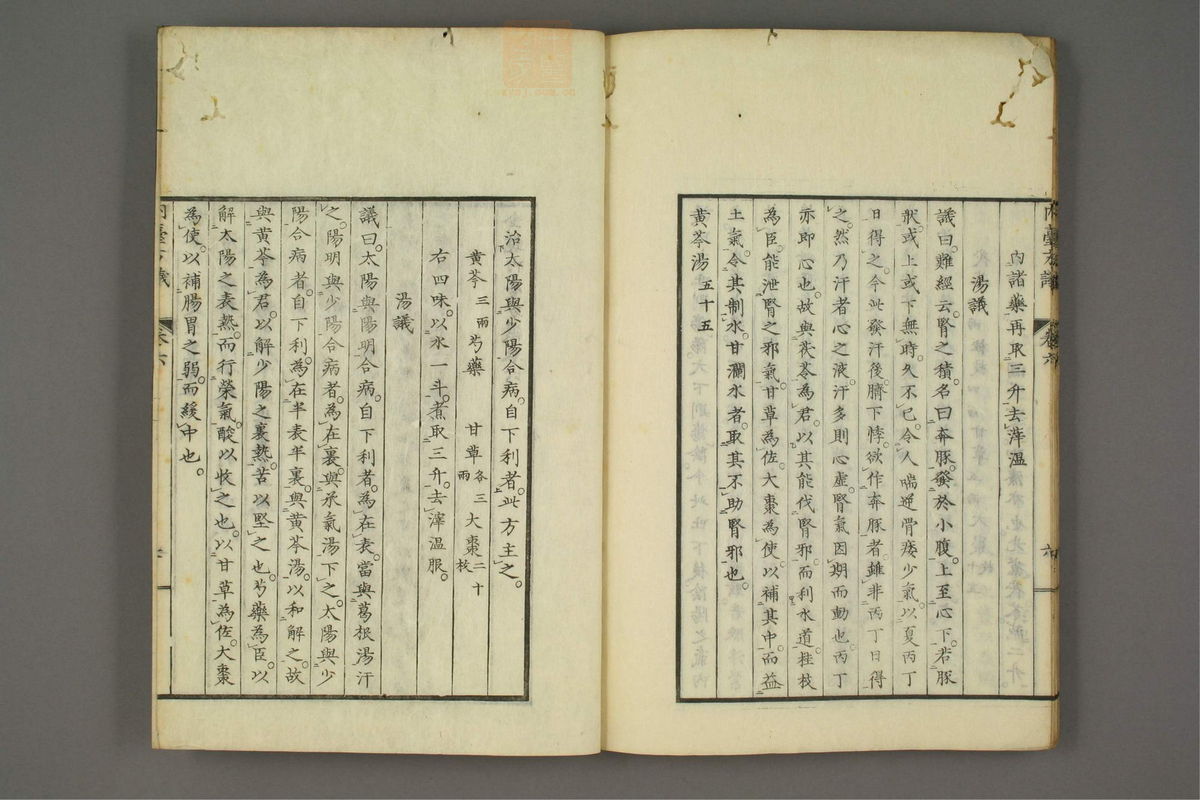 內諸藥再取三升去滓溫
湯議
議曰。難經云。腎之積名曰奔豚。發於小腹。上至心下。若豚
狀。或上或下無時。久不已。令人喘逆骨痿少氣。以夏丙丁
日得之。今此發汗後。臍下悸。欲作奔豚者。雖非丙丁日得
之。然乃汗者心之液。汗多則心虛。腎氣因期而動也。丙丁
亦即心也。故與茯苓為君。以其能伐腎邪。而利水道。桂枝
為臣。能泄腎之邪氣。甘草為佐。大棗為使。以補其中。而益
土氣。令其制水。甘瀾水者。取其不助腎邪也。
黃芩湯 五十五
治太陽與少陽合病。自下利者。此方主之。
黃芩三兩 芍藥 甘草各三兩 大棗二十枚
右四味。以水一斗。煮取三升。去滓溫服。
湯議
議曰。太陽與陽明合病。自下利者。為在表。當與葛根湯汗
之。陽明與少陽合病者。為在裏。與承氣湯下之。太陽與少
陽合病者。自下利。為在半表半裏。與黃芩湯。以和解之。故
與黃芩為君。以解少陽之裏熱。苦以堅之也。芍藥為臣。以
解太陽之表熱。而行榮氣。酸以收之也。以甘草為佐。大棗
為使。以補腸胃之弱。而緩中也。